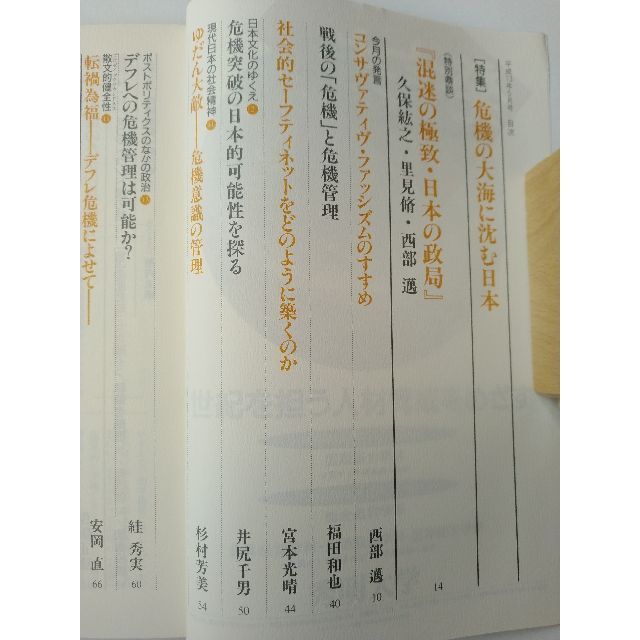 平成13年5月号 目次
[特集] 危機の大海に沈む日本
〈特別鼎談〉
『混迷の極致・日本の政局』
久保紘之・里見脩・西部 邁 14
今月の発言
コンサヴァティヴ・ファッシズムのすすめ 西部 邁 10
戦後の「危機」と危機管理 福田和也 40
社会的セーフティネットをどのように築くのか 宮本光晴 44
日本文化のゆくえ
危機突破の日本的可能性を探る 井尻千男 50
現代日本の社会精神
ゆだん大敵——危機意識の管理 杉村芳美 54
ポストポリティクスのなかの政治
デフレへの危機管理は可能か? 絓 秀実 60
散文的健全性
転禍為福——デフレ危機によせて—— 安岡 直 66